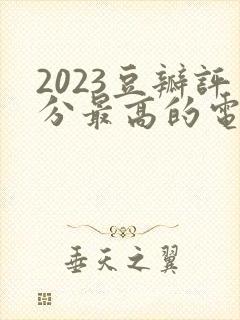 2023豆瓣評
分最高的電
垂天之翼